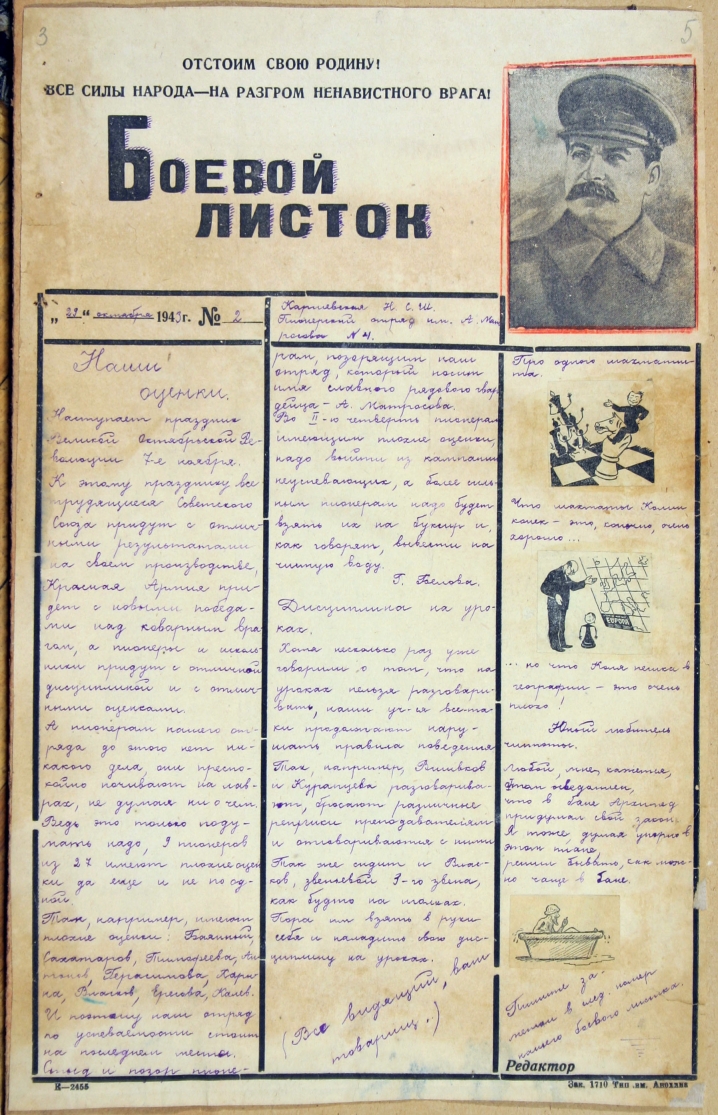 3
5
ОТСТОИМ СВОЮ РОДИНУ!
ВСЕ СИЛЫ НАРОДА—НА РАЗГРОМ НЕНАВИСТНОГО ВРАГА!
БОЕВОЙ
ЛИСТОК
„29“ октября 1943г. № 2
Н. С. Ш.
Пионерский отряд им. А. Мат
росова № 4.
Наши
оценки.
Наступает праздник
Великой Октябрьской Ре-
волюции 7-е ноября.
К этому празднику все
трудящиеся Советского
Союза придут с отлич-
ными результатами
на своем производстве,
Красная Армия при-
дет с новыми победа-
ми над коварным вра-
гом, а пионеры и школь-
ники придут с отличной
дисциплиной и с отлич-
ными оценками.
А пионерам нашего от-
ряда до этого нет ни-
какого дела, они преспо-
койно почивают на лав-
рах, не думая ни о чем.
Ведь это только поду-
мать надо, 9 пионеров
из 27 имеют плохие оцен
ки да еще и не по од-
ной.
Так, например, имеют
плохие оценки: Баянный,
Сахатаров, Тимофеева, Ан-
тонов, Герасимова, Карп-
Власков, Ересова, Калев.
И поэтому наш отряд
по успеваемости стоит
на последнем месте.
Стыд и позор пионе-
рам, позорящим наш
отряд, который носит
имя славного рядового гвар
дейца – А. Матросова.
Во II-ю четверть пионерам
имеющим плохие оценки,
надо выйти из кампании
неуспевающих, а более силь-
ным пионерам надо будет
взять их на буксир и,
как говорят, вывести на
чистую воду.
Г. Белова.
Дисциплина на уро-
ках.
Хотя несколько раз уже
говорили о том, что на
уроках нельзя разговари-
вать, наши уч-ся все-та-
ки продолжают нару-
шать правила поведения
Так, например,
и Куранцева разговарива-
ют, бросают различные
реплики преподавателям
и отговариваются с ними
Так же сидит и Влас-
ков, звеньевой 3-го звена,
как будто на иголках.
Пора им взять в руки
себя и наладить свою дис-
циплину на уроках.
(Все видящий, ваш
товарищ.)
Про одного шахматис-
та.
Что шахматы Колин
конек – это, конечно, очень
хорошо...
ЕВРОПА
... но что Коля пешка в
географии – это очень
плохо!
Юный любитель
чистоты.
Любой, мне кажется,
этом осведомлен,
что в бане Архимед
придумал свой закон.
Я тоже думая упорно в
этом плане,
решил бывать, как мож-
но чаще в бане.
Пишите за-
метки в след. номер
нашего боевого листка.
Редактор
К—2455
Зак. 1710 Тип им. Анохина